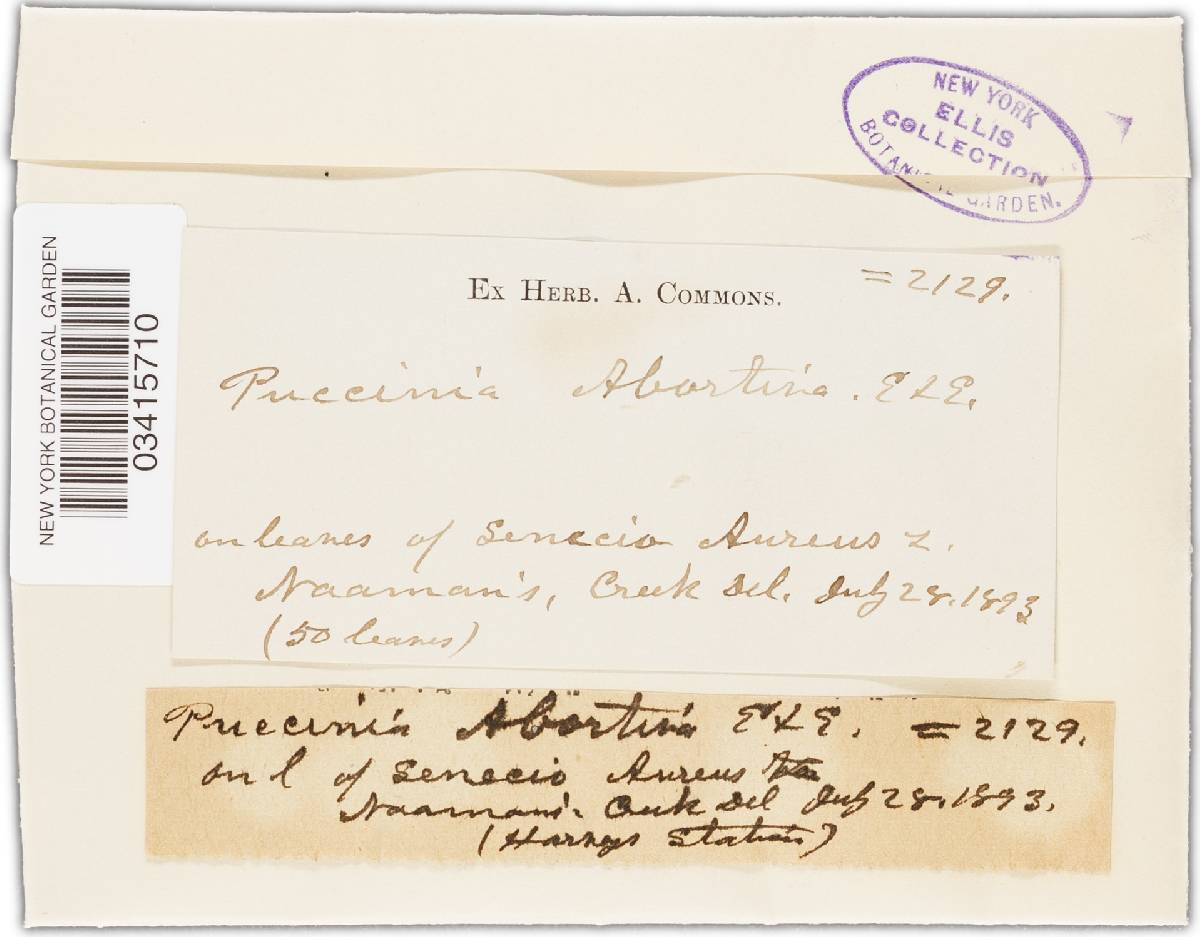 NEW YORK
ELLIS
COLLECTION
BOTANICAL GARDEN.
NEW YORK BOTANICAL GARDEN
03415710
EX HERB. A. COMMONS.
=2129.
Puccinia Abortiva. E&E.
on leaves of Senecio Aureus L.
Naaman's, Creek Del. July 28. 1893
(50 leaves)
Puccinia Abortiva E&E. =2129.
on l of Senecio Aureus
Naaman's Creek Del July 28. 1893.
(Harveys Station)